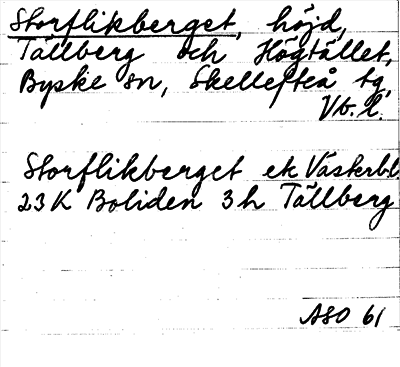 Storflikberget, höjd,
Tällberg och Högtället,
Byske sn, Skellefteå tg,
Vb. l.
Storflikberget ek Västerbl.
23K Boliden 3h Tällberg
ASO 61